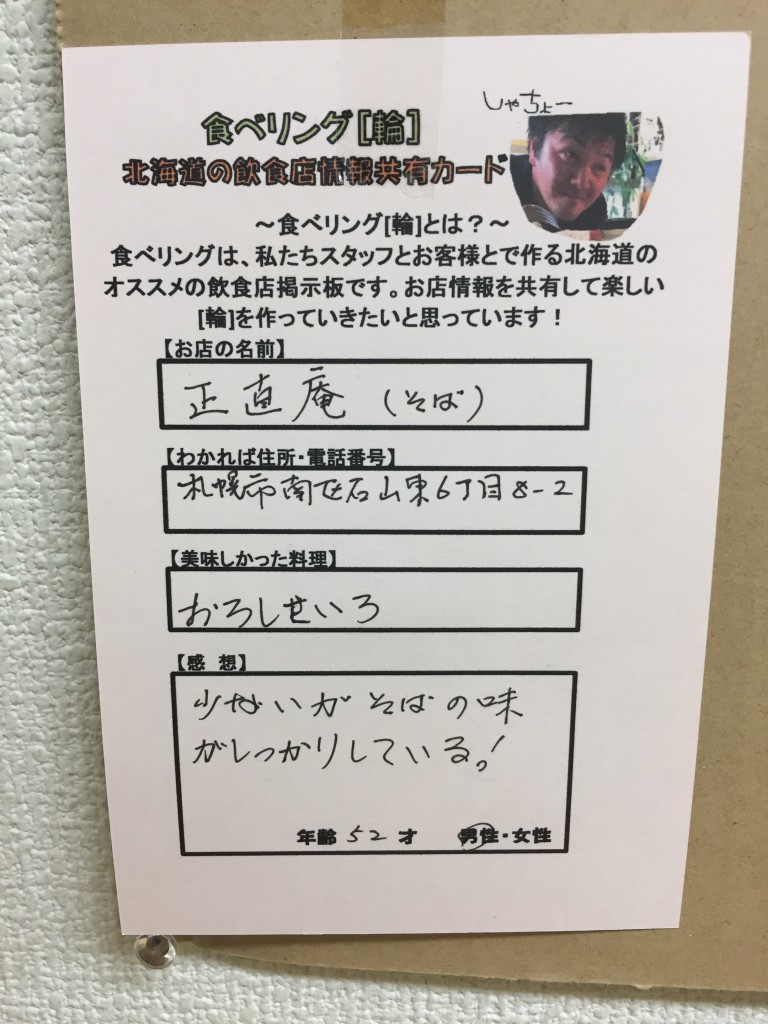 しゃちょー
食べリング[輪]
北海道の飲食店情報共有カード
～食べリング[輪]とは？～
食べリングは、私たちスタッフとお客様とで作る北海道の
オススメの飲食店掲示板です。お店情報を共有して楽しい
[輪]を作っていきたいと思っています！
【お店の名前】
正直庵（そば）
【わかれば住所・電話番号】
札幌市南区石山東6丁目8-2
【美味しかった料理】
おろしせいろ
【感 想】
少ないがそばの味
がしっかりしているっ！
年齢 52 才 男性・女性